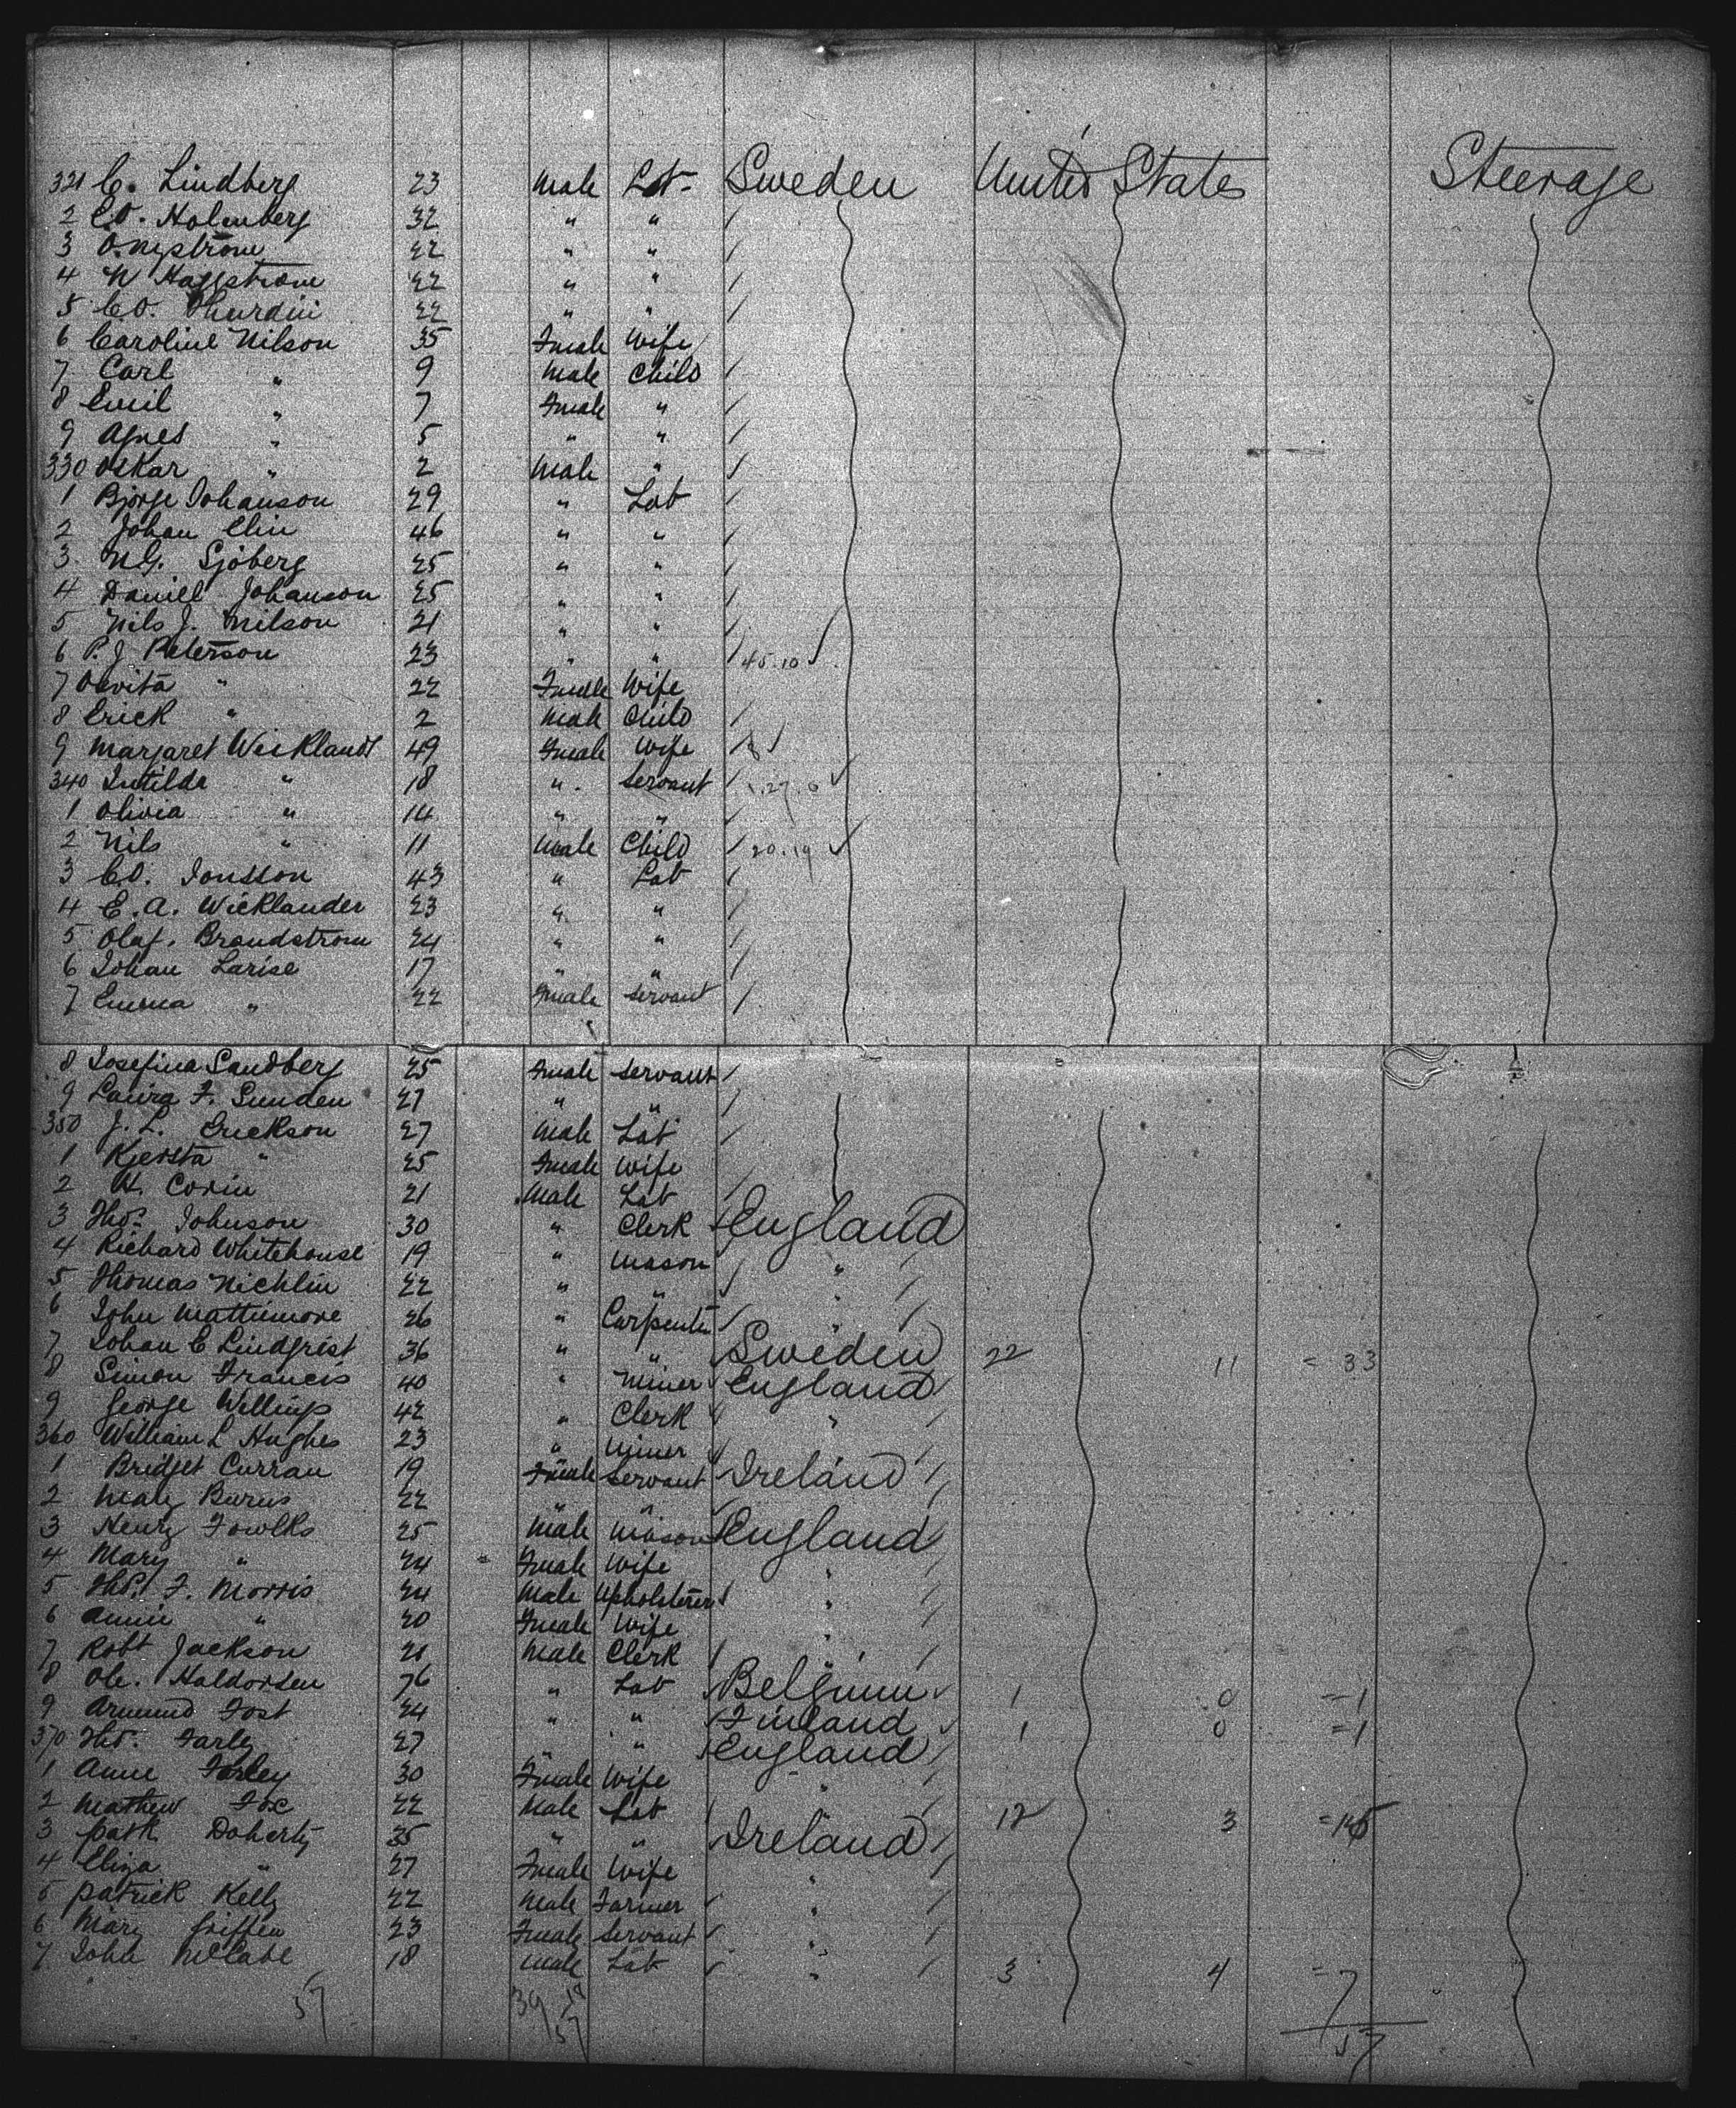 321 C. Lindberg 23 Male Lab- Sweden United States Steerage
2 C.O. Holmberg 32 " "
3 O. Nystrom 22 " "
4 N Haggstrom 22 " "
5 C.O. Thurdin 22 " "
6 Caroline Nilson 35 Female Wife
7 Carl " 9 Male Child
8 Emil " 7 Female "
9 Agnes " 5 " "
330 Oskar " 2 Male "
1 Bjorge Johanson 29 " Lab
2 Johan Elin 46 " "
3 N.G. Sjoberg 25 " "
4 Daniel Johanson 25 " "
5 Nils J. Nilson 21 " "
6 P. J Peterson 23 " " 45.10
7 " 22 Female Wife
8 Erick " 2 Male Child
9 Margaret Wicklandt 49 Female Wife
340 " 18 " Servant
1 Olivia " 14 " "
2 Nils " 11 Male Child 20.19
3 C.O. Jonsson 43 " Lab
4 E. A. Wicklander 23 " "
5 Olaf. Brandstrom 24 " "
6 Johan Larise 17 " "
7 Emma " 22 Female Servant
8 Josefina Sandberg 25 Female Servant
9 Laura F. Sunden 27 " "
350 J. L. Erickson 27 Male Lab
1 Kjersta " 25 Female Wife
2 H. Corin 21 Male Lab
3 Thos. Johnson 30 " Clerk England
4 Richard Whitehouse 19 " Mason "
5 Thomas Nichlin 22 " " "
6 John Mattimore 26 " Carpenter "
7 Johan C Lindgrist 36 " " Sweden 22 11 = 33
8 Simon Francis 40 " Miner England
9 George Willings 42 " Clerk "
360 William L Hughes 23 " Miner "
1 Bridget Curran 19 Female Servant Ireland
2 Mary Burns 22 " " "
3 Henry Fowlks 25 Male Mason England
4 Mary " 24 Female Wife "
5 Thos. F. Morris 24 Male Upholsterer "
6 Annie " 20 Female Wife "
7 Robt Jackson 21 Male Clerk "
8 Ole. Haldorsen 76 " Lab Belgium 1 0 = 1
9 Armund Fost 24 " " Finland 1 0 = 1
370 Tho. Farley 27 " " England
1 Anne Farley 30 Female Wife "
2 Mathew Fox 22 Male Lab " 12 3 = 15
3 Patk Doherty 35 " " Ireland
4 Eliza " 27 Female Wife "
5 Patrick Kelly 22 Male Farmer "
6 Mary Griffen 23 Female Servant "
7 John McCabe 18 Male Lab " 3 4 = 7
57 39 18 57
57